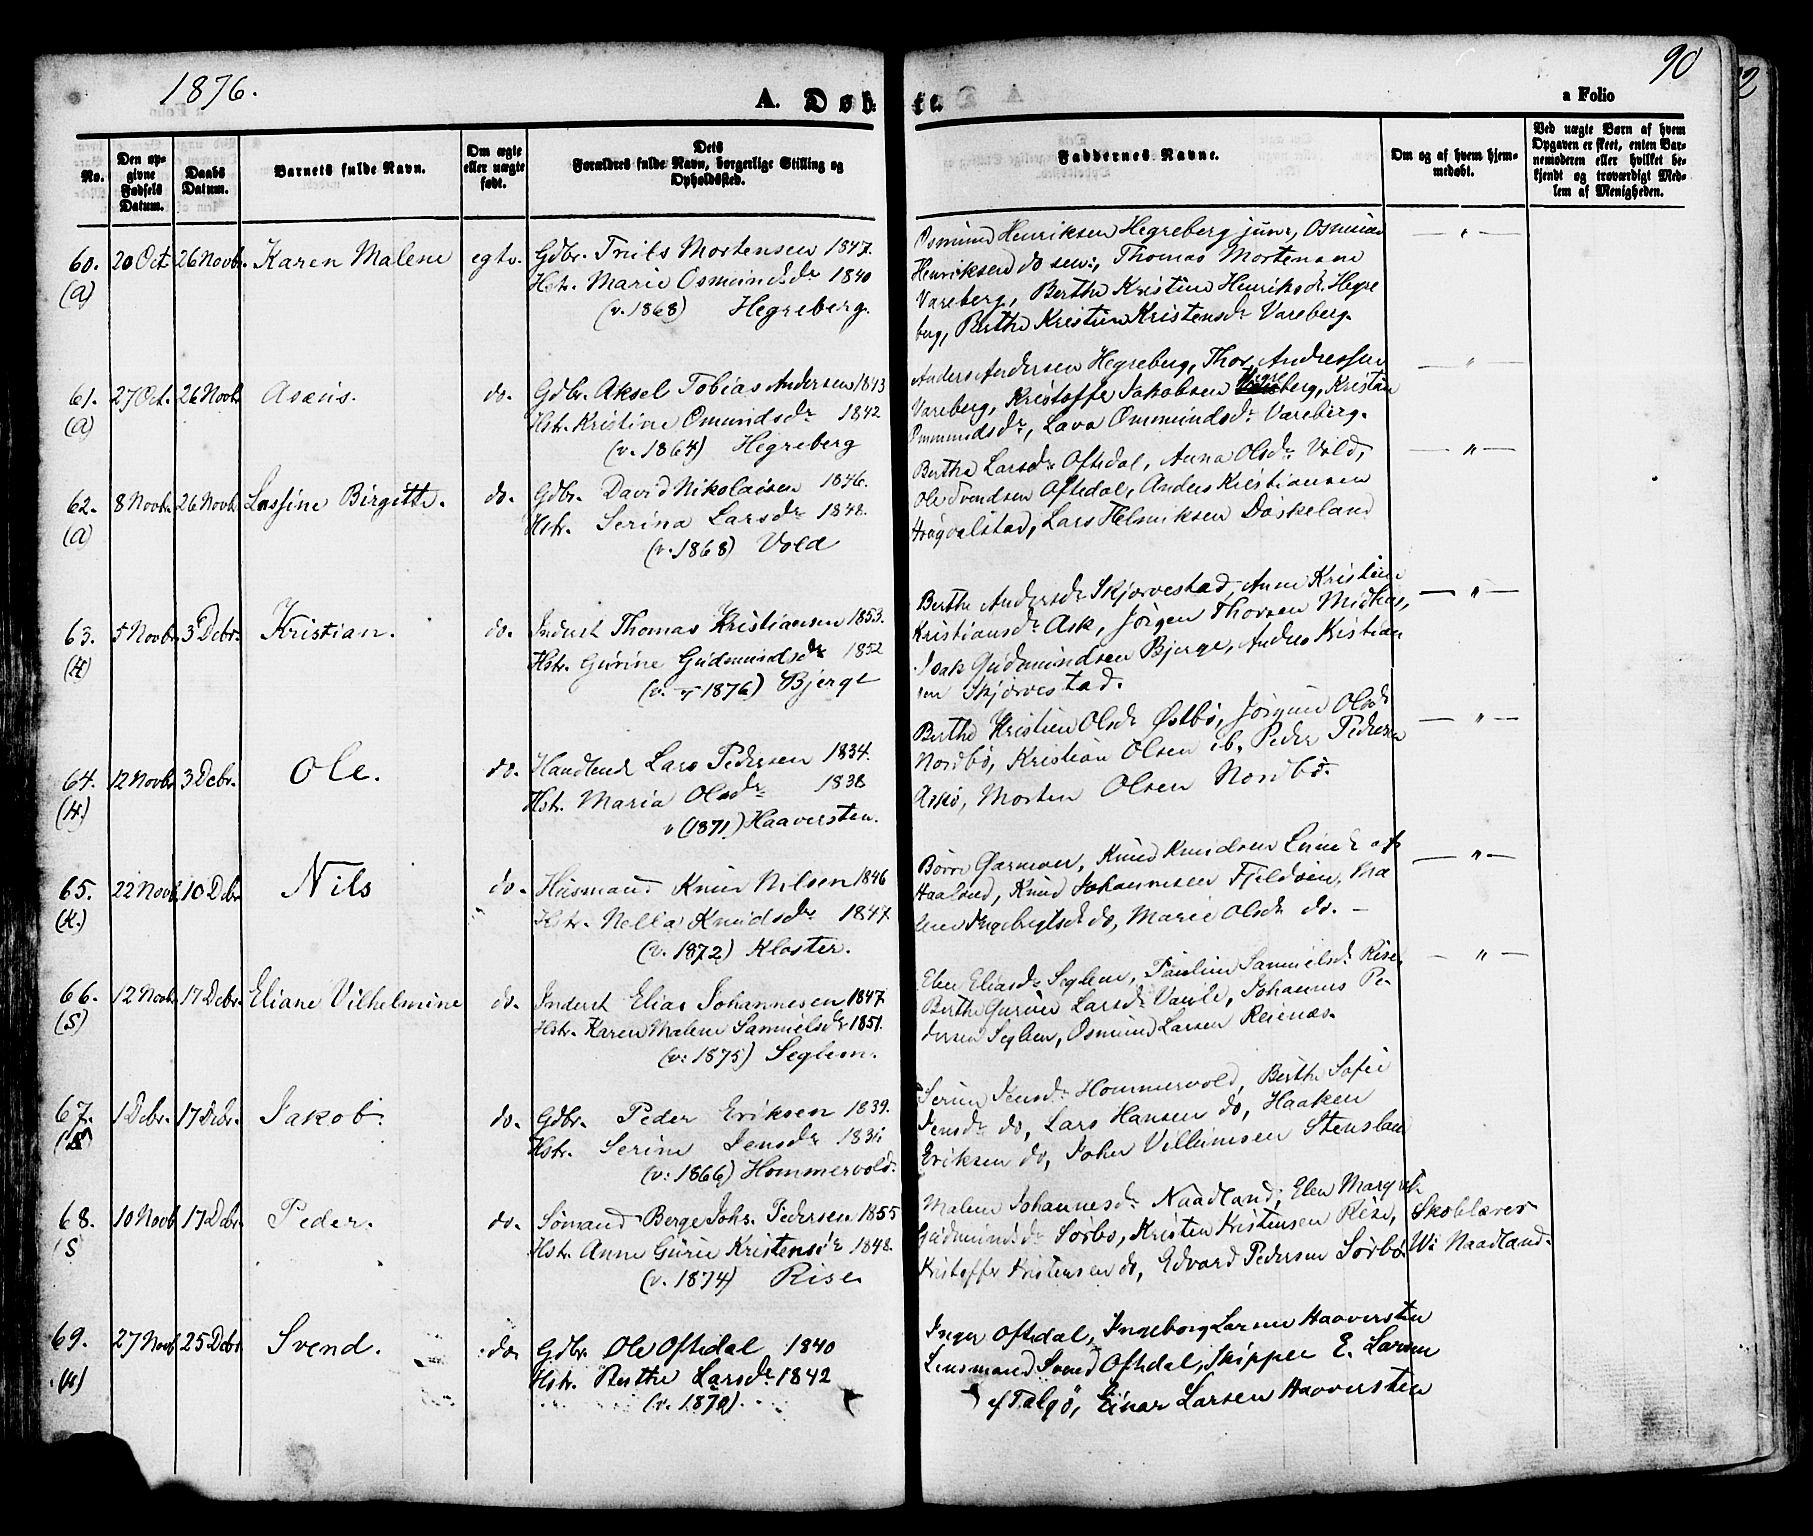 1876.
A. Døb-
te.
90
a Folio
No.
Den op-
givne
Fødsels
Datum.
Daabs
Datum.
Barnets fulde Navn.
Om ægte
eller uægte
født.
Dets
Forældres fulde Navn, borgerlige Stilling og
Opholdssted.
Faddernes Navne.
Om og af hvem hjem-
medøbt.
Ved uægte Børn af hvem
Opgaven er skeet, enten Bar-
nemoderen eller hvilket be-
kjendt og troværdigt Med-
lem af Menigheden.
60. 20 Oct. 26 Novbr. Karen Malene egte. Gdbr. Mortensen 1847.
(A) Hstr. Marie Osmundsdr 1840
(v. 1868) Hegreberg.
Osmund Henriksen Hegreberg junr, Osmund
Henriksen do sen:, Thomas Mortensen
Vareberg, Berthe Kristine Henriksdr Hegre
berg, Berthe Kristine Kristensdr Vareberg.
— " —
61. 27 Oct. 26 Novb. Asæus. do. Gdbr. Aksel Tobias Andersen 1843
(A) Hstr. Kristine Omundsdr 1842
(v. 1864) Hegreberg
Anders Andersen Hegreberg, Thor Andreassen
Vareberg, Kristoffer Jakobsen Hegreberg, Kristine
Ommundsdr, Lava Ommundsdr Vareberg.
— " —
62. 8 Novbr. 26 Novb. Lassine Birgitte. do. Gdbr. David Nikolaisen 1846.
(A) Hstr. Serina Larsdr 1848.
(v. 1868) Vold
Berthe Larsdr Oftedal, Anna Olsdr Vold,
Ole Svendsen Oftedal, Anders Kristiansen
Lars Helmiksen Døskeland
— " —
63. 5 Novbr. 3 Debr. Kristian. do. Inderst Thomas Kristiansen 1853.
(H) Hstr. Gurine Gudmundsdr 1852
(v. 1876) Bjerge
Berthe Andersdr Skjørvestad, Anne Kristine
Kristiansdr Ask, Jørgen Thorsen
Isak Gudmundsen Bjerge, Andres Kristian
sen Skjørvestad.
— " —
64. 12 Novbr. 3 Debr. Ole. do. Handlende Lars Pedersen 1834.
(H.) Hstr. Maria Olsdr 1838
v (1871) Haaversten.
Berthe Kristine Olsdr Østbø, Jørgine Olsdr
Nordbø, Kristian Olsen ib. Peder Pedersen
Askø, Morten Olsen Nordbø.
— " —
65. 22 Novb. 10 Debr. Nils do. Husmand Knud Nilsen 1846
(K.) Hstr. Nella Knudsdr 1847.
(v. 1872) Kloster.
Børre Garmoer, Knud Knudsen
Knud Johannesen Fjeldøen, Ma
lene Ingebrigtsdr do, Marie Olsdr do. —
— " —
66. 12 Novb. 17 Debr. Eliane Vilhelmine do. Inderst Elias Johannesen 1847.
(S) Hstr. Karen Malene Samuelsdr 1851.
(v: 1875) Seglem.
Elen Eliasdr Seglem, Pauline Samuelsdr Rise,
Berthe Gurine Larsdr Vaule, Johannes Pe-
dersen Seglem, Osmund Larsen Reienæs.
— " —
67. 1 Debr. 17 Debr. Jakob. do. Gdbr. Peder Eriksen 1839.
(S) Hstr. Serine Jensdr
(v: 1866) Hommervold.
Serine Jensdr Hommervold, Berthe Sofie
Jensdr do, Lars Hansen do, Haaken
Eriksen do, John Villumsen Stensland
68. 10 Novb 17 Debr. Peder. do. Sømand Berge Johs. Pedersen 1855
S Hstr. Anne Gurie Kristensdr 1848.
(v. 1874) Rise
Malene Johannesdr Naadland, Elen Margrete
Gudmundsdr Sørbø, Kristen Kristensen Rise,
Kristoffer Kristensen do, Edvard Pedersen Sørbø.
Skolelærer
W. Naadland.
69. 27 Novb 25 Debr. Svend. do. Gdbr. Ole Oftedal 1840
(H) Hstr. Berthe Larsdr 1842
(v. 1870).
Inger Oftedal, Ingeborg Larsen Haaversten
Lensmand Svend Oftedal, Skipper E. Larsen
af Talgø, Einar Larsen Haaversten